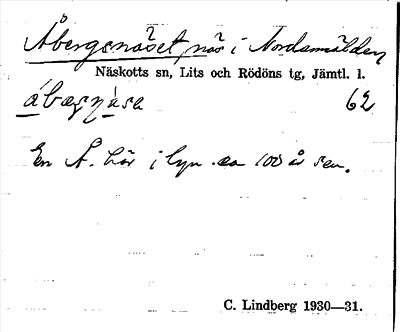 Åbergsnäset, näs i Nordsmälden
Näskotts sn, Lits och Rödöns tg, Jämtl. l.
åbægŋàsa 62
En Å. här i byn ca 100 år sen.
C. Lindberg 1930—31.